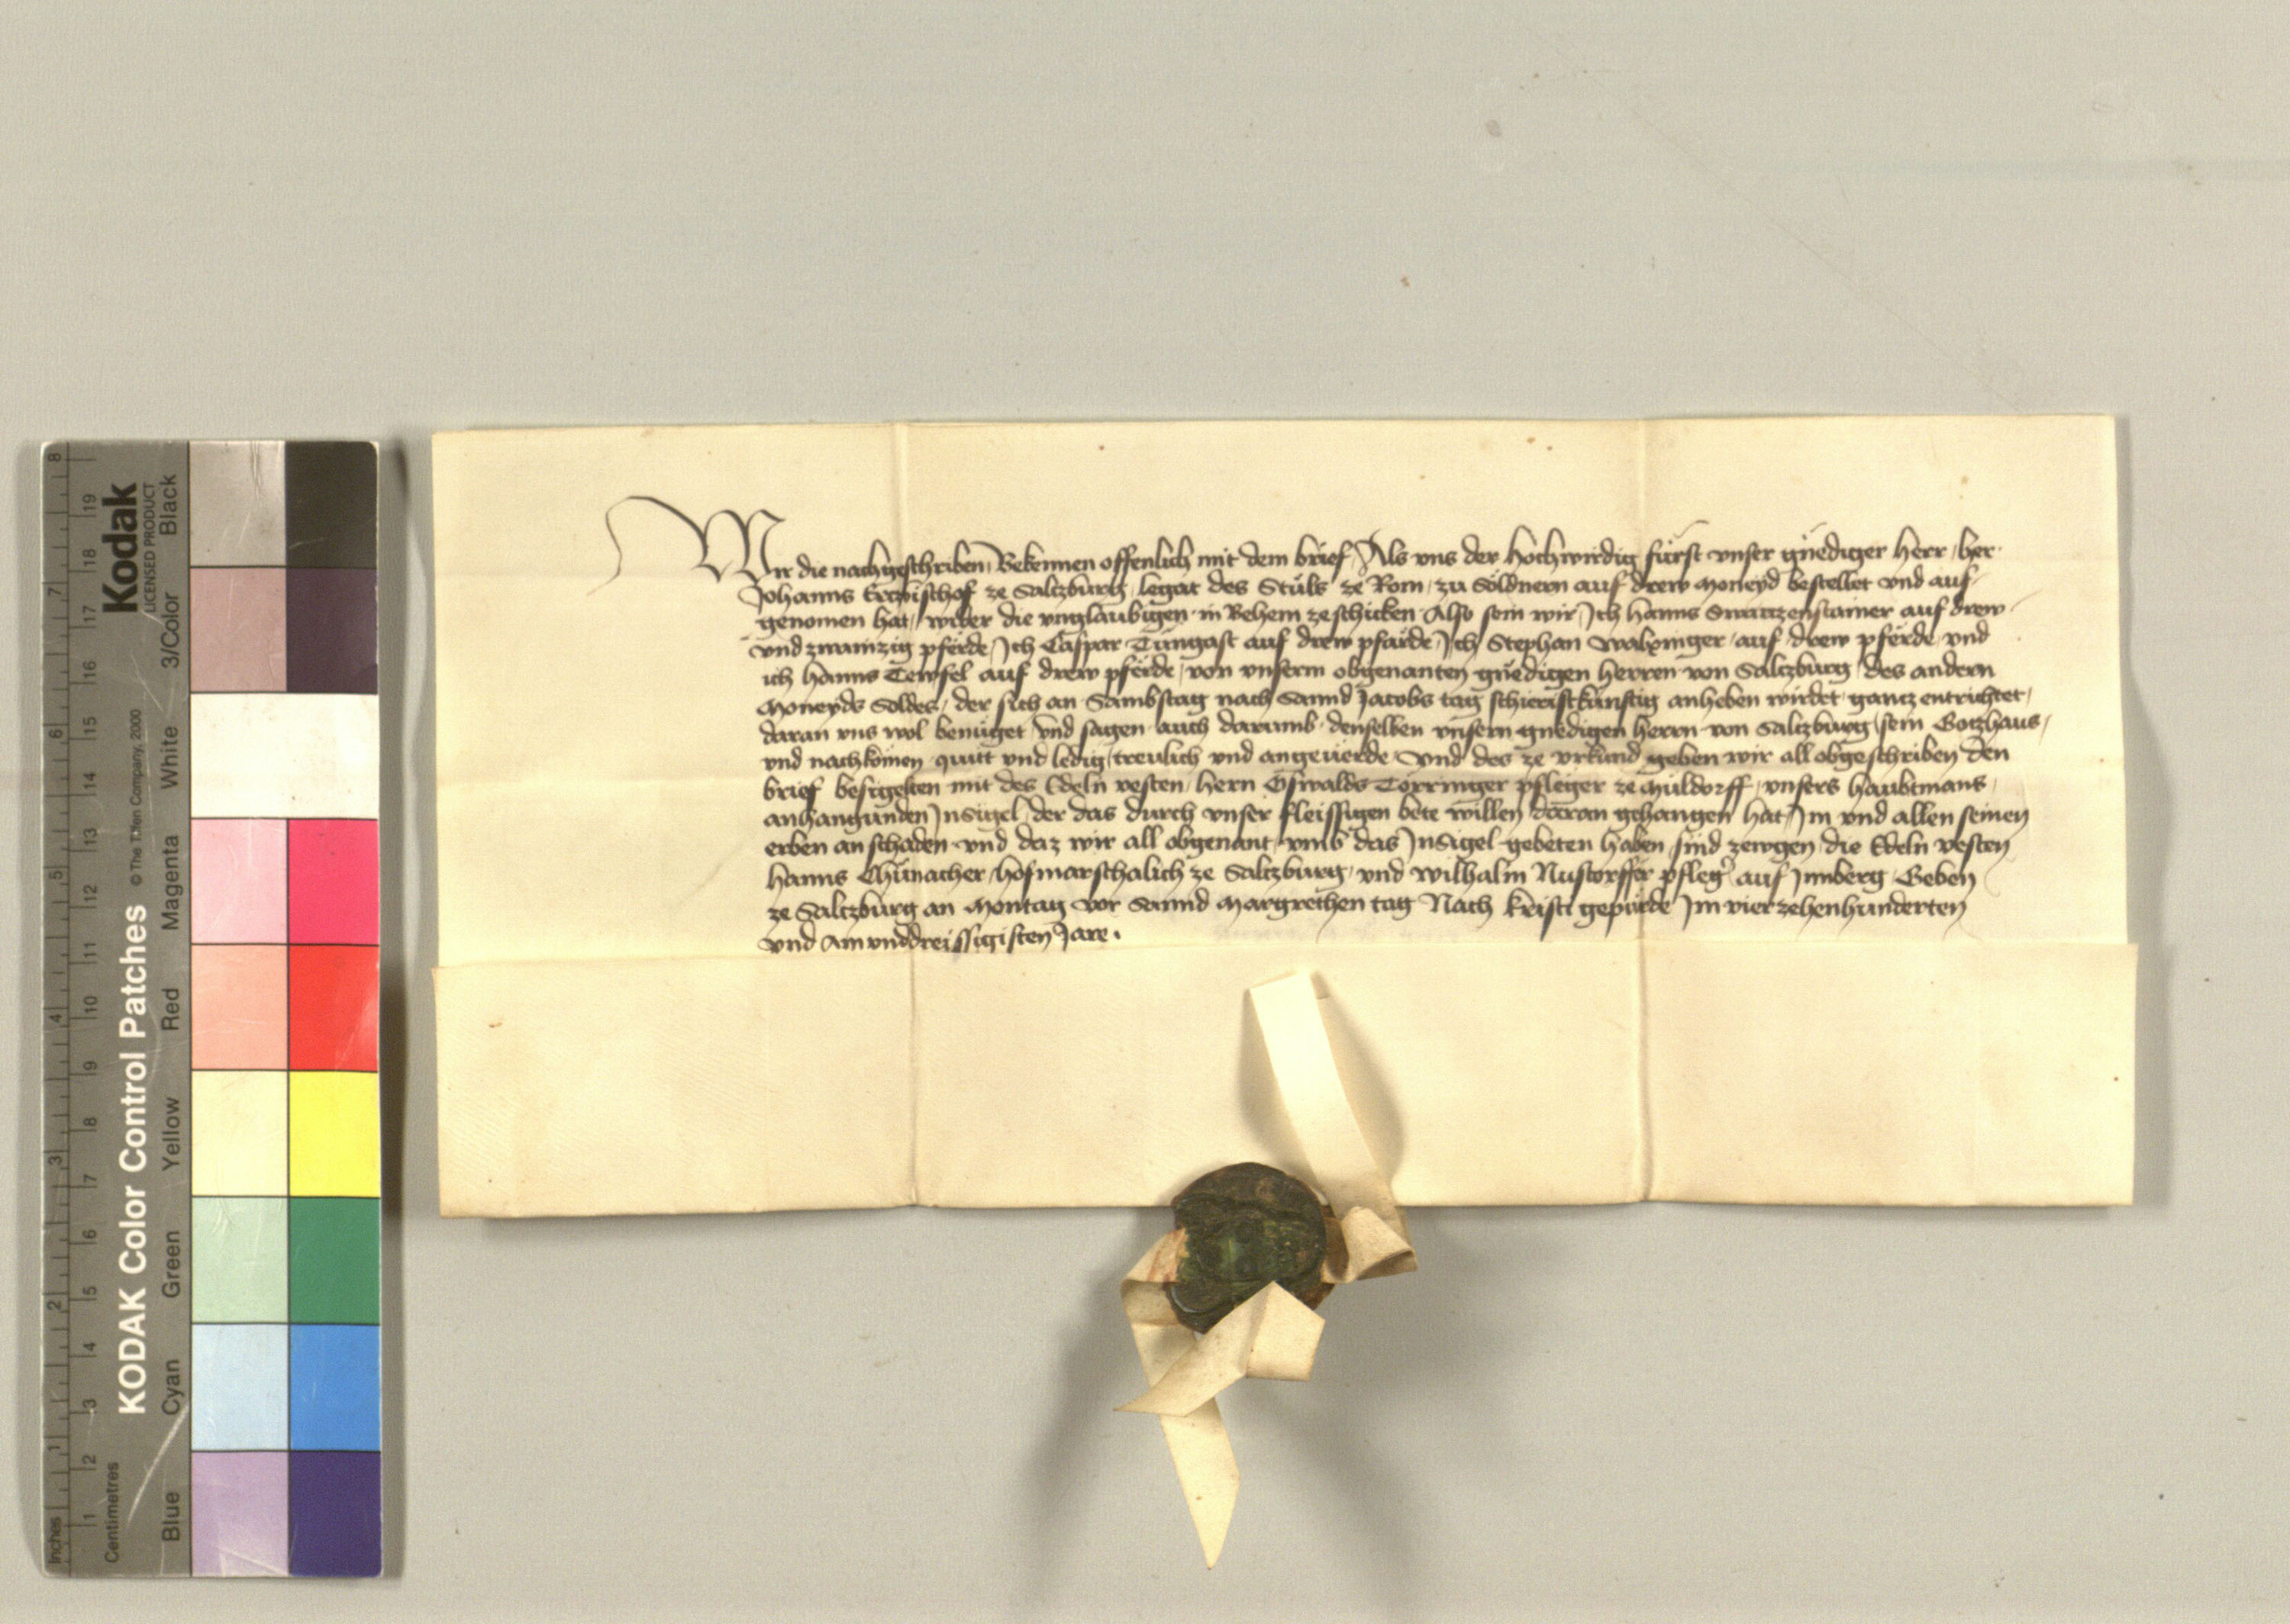 Wir die nachgeschriben Bekennen offenlich mit dem brief Als vns der hochwirdig fürst vnser gnediger herr her
Johanns Ertzbischof ze Saltzburg legat des Stuls ze Rom zu Soldnern auf drew Moneyd bestellet vnd auf
genomen hat wider die vnglaubigen in Behem zeschicken Also sein wir Ich Hanns auf drew
vnd zwainzig pferde Ich Caspar Tungast auf drew pfärde Ich Stephan auf drew pferde vnd
ich Hanns Tewfel auf drew pferde von vnserm obgenanten gnedigen Herren von Saltzburg des andern
Moneyds Soldes der sich an Sambstag nach Sannd Jacobs tag schieristkünftig anheben wirdet gancz entrichtet
daran vns wol benüget vnd sagen auch darumb denselben vnsern gnedigen herrn von Saltzburg sein Gotzhaus
vnd nachkomen quitt vnd ledig treulich vnd angeuerde vnd des ze vrkund geben wir all obgeschriben den
brief besigelten mit des Edeln vesten hern Oswalds Törringer pfleger ze Müldorff vnsers haubtmans
anhangunden Insigel der das durch vnser fleissigen bete willen daran gehangen hat Im vnd allen seinen
erben an schaden vnd daz wir all obgenant vmb das Insigel gebeten haben sind zewgen die Edeln vesten
Hanns Chünacher hofmarschalich ze Saltzburg vnd Wilhalm Nustorffer pfleger auf Geben
ze Saltzburg an Montag vor Sannd Margrethen tag Nach Kristi gepürde Im vierzehenhunderten
vnd Ainvnddreissigisten Jare.
KODAK Color Control Patches
Kodak
LICENSED PRODUCT
© The Tiffen Company, 2000
Inches 1 2 3 4 5 6 7 8
Centimetres 1 2 3 4 5 6 7 8 9 10 11 12 13 14 15 16 17 18 19
Blue Cyan Green Yellow Red Magenta White 3/Color Black